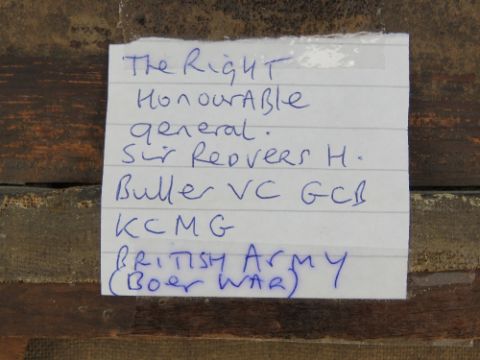 The Right
HonourABle
general.
Sir Reovers H.
Buller VC GCB
KCMG
BRITISH ArMY
(Boer WAR)